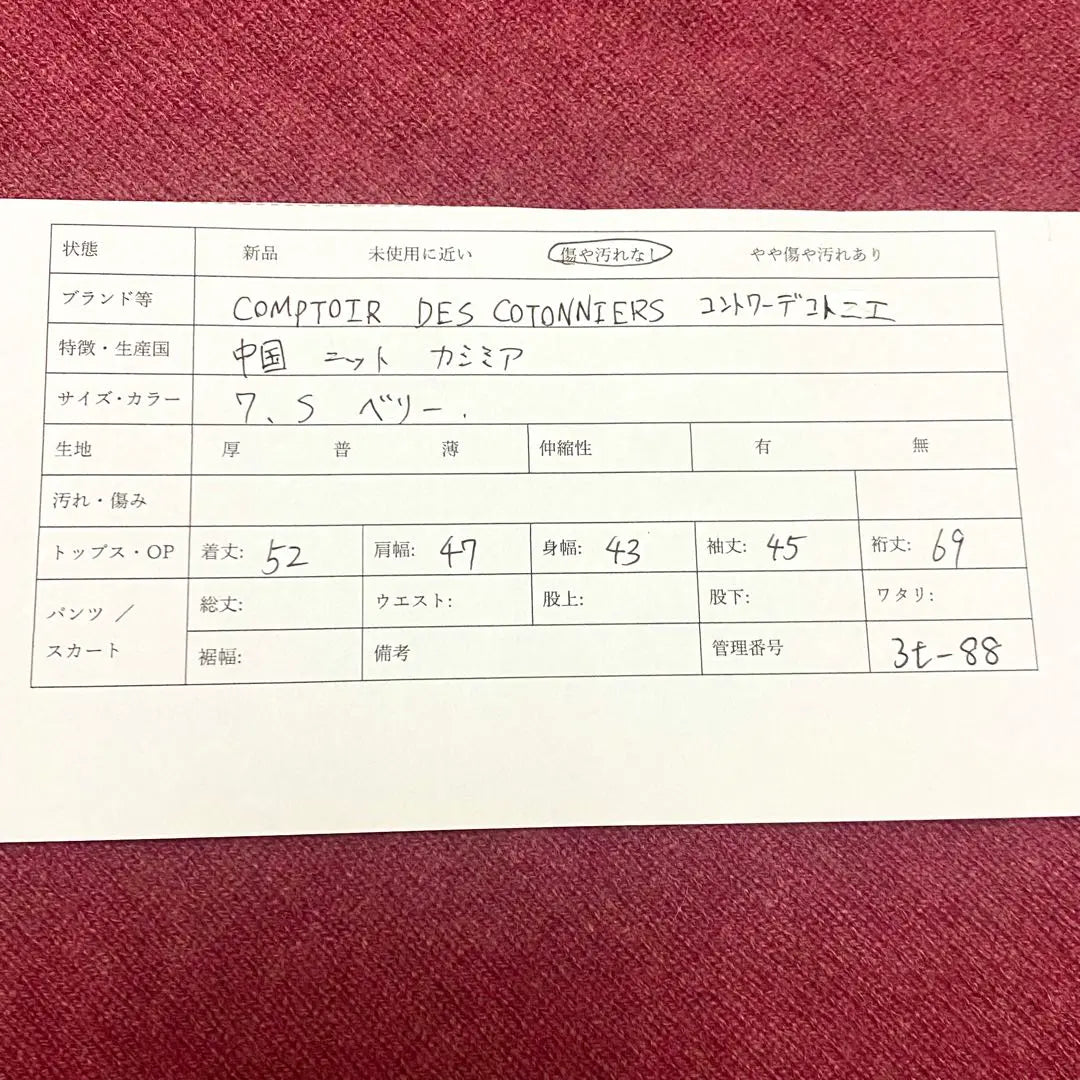 状態 新品 未使用に近い 傷や汚れなし やや傷や汚れあり
ブランド等 COMPTOIR DES COTONNIERS コントワーデコトニエ
特徴・生産国 中国 ニット カシミア
サイズ・カラー 7、S ベリー.
生地 厚 普 薄 伸縮性 有 無
汚れ・傷み
トップス・OP 着丈: 52 肩幅: 47 身幅: 43 袖丈: 45 裄丈: 69
パンツ / 総丈: ウエスト: 股上: 股下: ワタリ:
スカート 裾幅: 備考 管理番号 3t-88